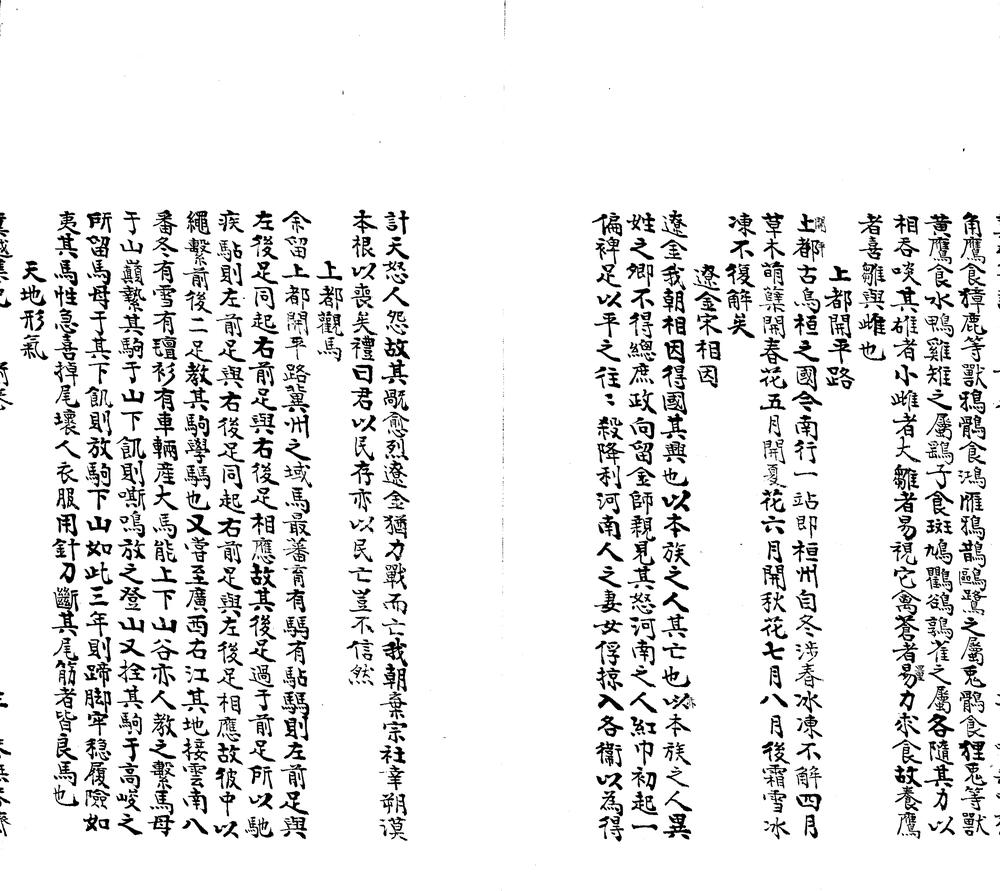 角鷹食獐鹿等獸鴉鶻食鴻雁鴉鵲鷗鷺之屬兎鶻食狸兎等獸
黄鷹食水鴨雞雉之屬鷂子食斑鳩鸜鵒鶉雀之屬各隨其力以
相吞啖其雄者小雌者大雛者易視它禽蒼者易力求食故養鷹
者喜雛與雌也
上都開平路
上都古烏桓之國今南行一站即桓州自冬涉春冰凍不解四月
草木萌蘗開春花五月開夏花六月開秋花七月八月後霜雪冰
凍不復解矣
遼金宋相因
遼金我朝相因得國其興也以本族之人其亡也以本族之人異
姓之卿不得總庶政向留金師親見其怒河南之人紅巾初起一
偏裨足以平之往〻殺降利河南人之妻女俘掠入各衞以為得
計天怒人怨故其敵愈烈遼金猶力戰而亡我朝棄宗社幸朔漠
本根以喪矣禮曰君以民存亦以民亡豈不信然
上都觀馬
余留上都開平路冀州之域馬最蕃育有騸有騇騸則左前足與
左後足同起右前足與右後足相應故其後足過于前足所以馳
疾則左前足與右後足同起右前足與左後足相應故彼中以
繩繫前後二足教其駒學騸也又嘗至廣西右江其地接雲南八
番冬有雪有氊衫有車輛産大馬能上下山谷亦人教之繫馬母
于山巔縶其駒于山下飢則嘶鳴放之登山又拴其駒于高峻之
所留馬母于其下飢則放駒下山如此三年則蹄脚牢穏履險如
夷其馬性急喜掉尾壞人衣服用針刀斷其尾筋者皆良馬也
天地形氣